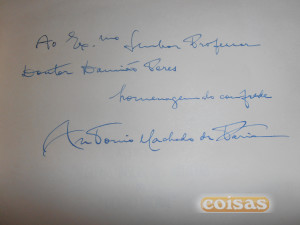 Ao Ex.mo Senhor Professor
Doutor Damião Peres
homenagem do confrade
António Machado de Faria
coisas